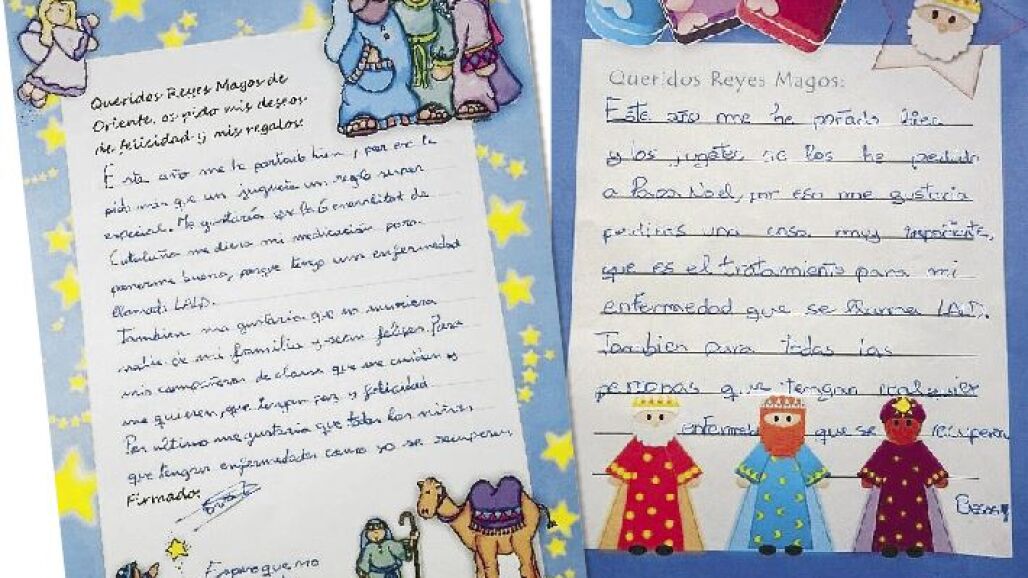 Queridos Reyes Magos de
Oriente, os pido mis deseos
de felicidad y mis regalos:
Este año me he portado bien, por eso le
pido más que un juguete un regalo super
especial. Me gustaría que la Generalitat de
Cataluña me diera mi medicación para
ponerme bueno, porque tengo una enfermedad
llamada LALD.
También me gustaría que no muriera
nadie de mi familia y sean felices. Para
mis compañeros de clase que me cuidan y
me quieren, que tengan paz y felicidad
Por último me gustaría que todos los niños
que tengan enfermedades como yo se recuperen
Firmado:
Espero que no
Queridos Reyes Magos:
Este año me he portado bien
y los juguetes ya los he pedido
a Papa Noel, por eso me gustaria
pediros una cosa muy importante,
que es el tratamiento para mi
enfermedad que se llama LALD.
Tambien para todas las
personas que tengan cualquier
enfermedad que se recuperen